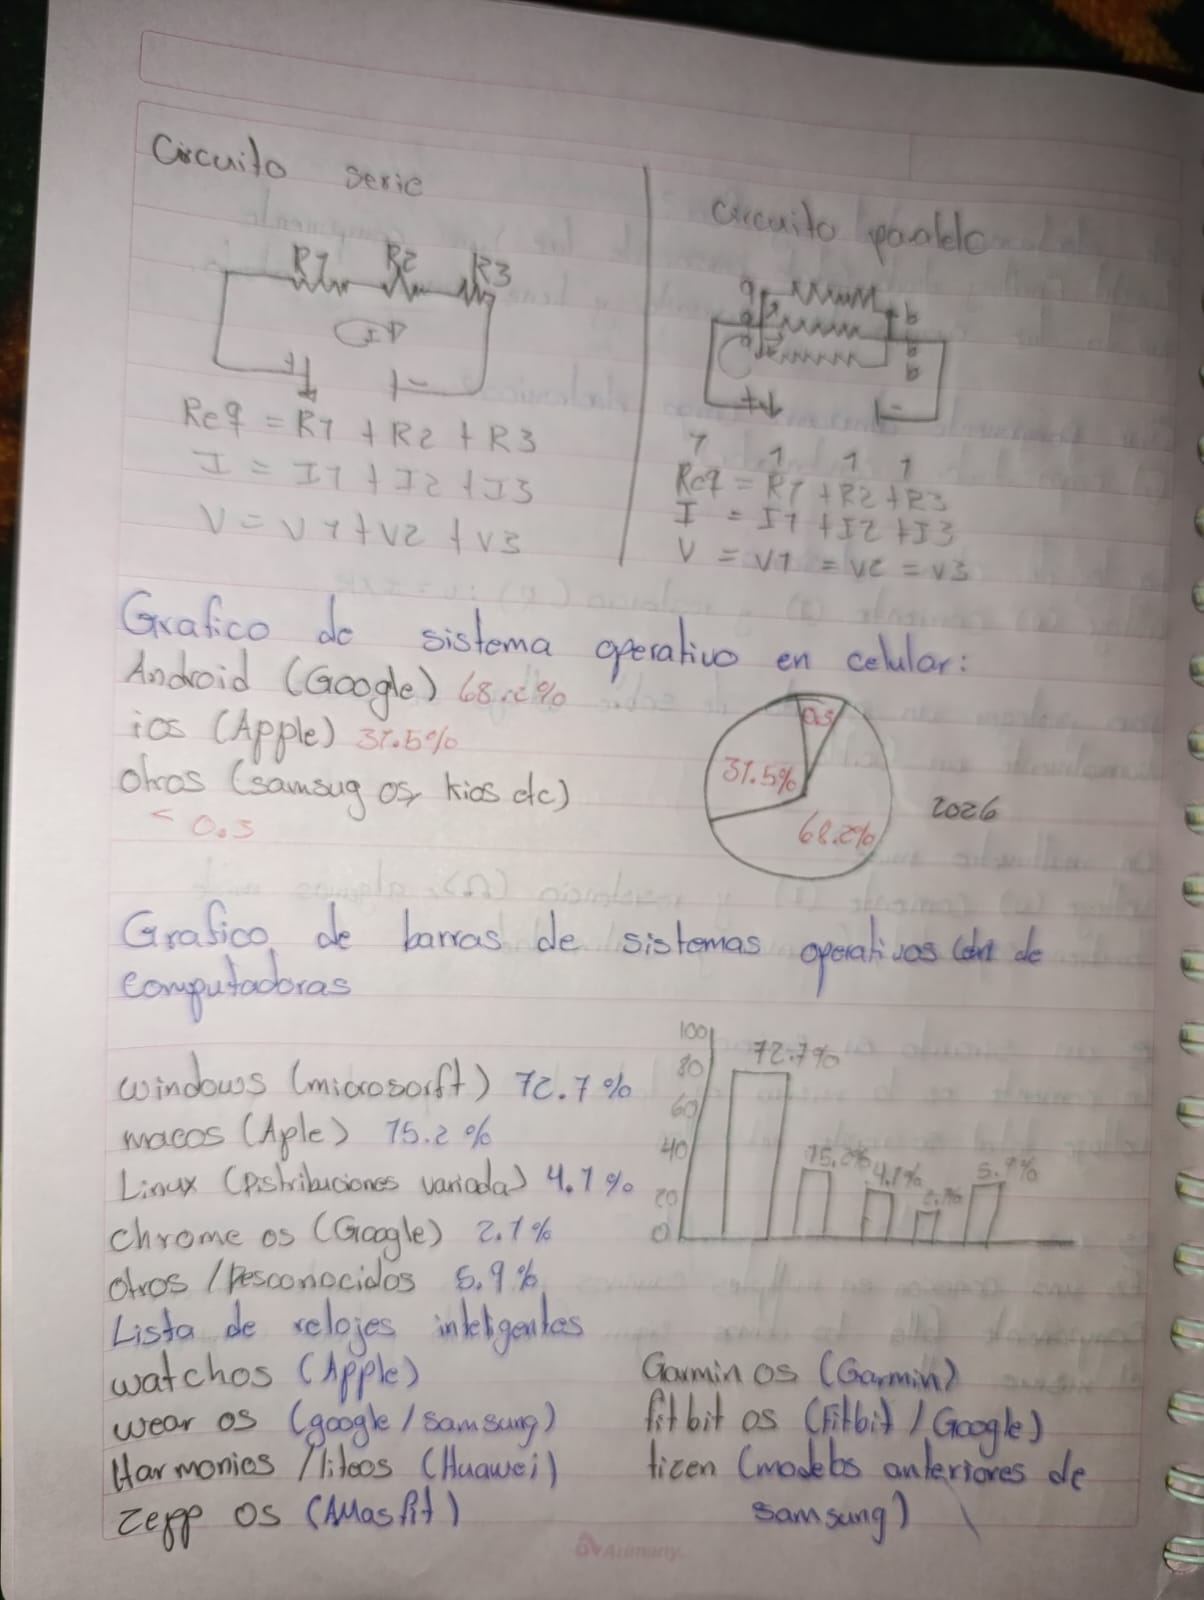 Circuito serie
R1 R2 R3
I
+ -
Req = R1 + R2 + R3
I = I1 + I2 + I3
V = V1 + V2 + V3
Circuito paralelo
a b
a b
a b
+ -
1 1 1 1
Req = R1 + R2 + R3
I = I1 + I2 + I3
V = V1 = V2 = V3
Grafico de sistema operativo en celular:
Android (Google) 68.2%
ios (Apple) 31.5%
otros (samsug os, kios etc)
< 0.3
0.3
31.5%
68.2%
2026
Grafico de barras de sistemas operativos de
computadoras
windows (microsorft) 72.7%
macos (Aple) 15.2%
Linux (Distribuciones variada) 4.1%
chrome os (Google) 2.1%
otros / Desconocidos 5.9%
100
80
60
40
20
0
72.7%
15.2%
4.1%
2.1%
5.9%
Lista de relojes inteligentes
watchos (Apple)
wear os (google / samsung)
Harmonios / liteos (Huawei)
zepp os (AMasfit)
Garmin os (Garmin)
fitbit os (Fitbit / Google)
tizen (modelos anteriores de
samsung)
Arimany